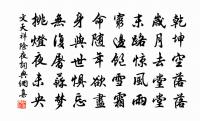 乾坤空落落
歲月去堂堂
末路驚風雨
窮邊飽雪霜
命隨年欲盡
身與世俱忘
無復屠蘇夢
挑燈夜未央
文天祥除夜詞典網集